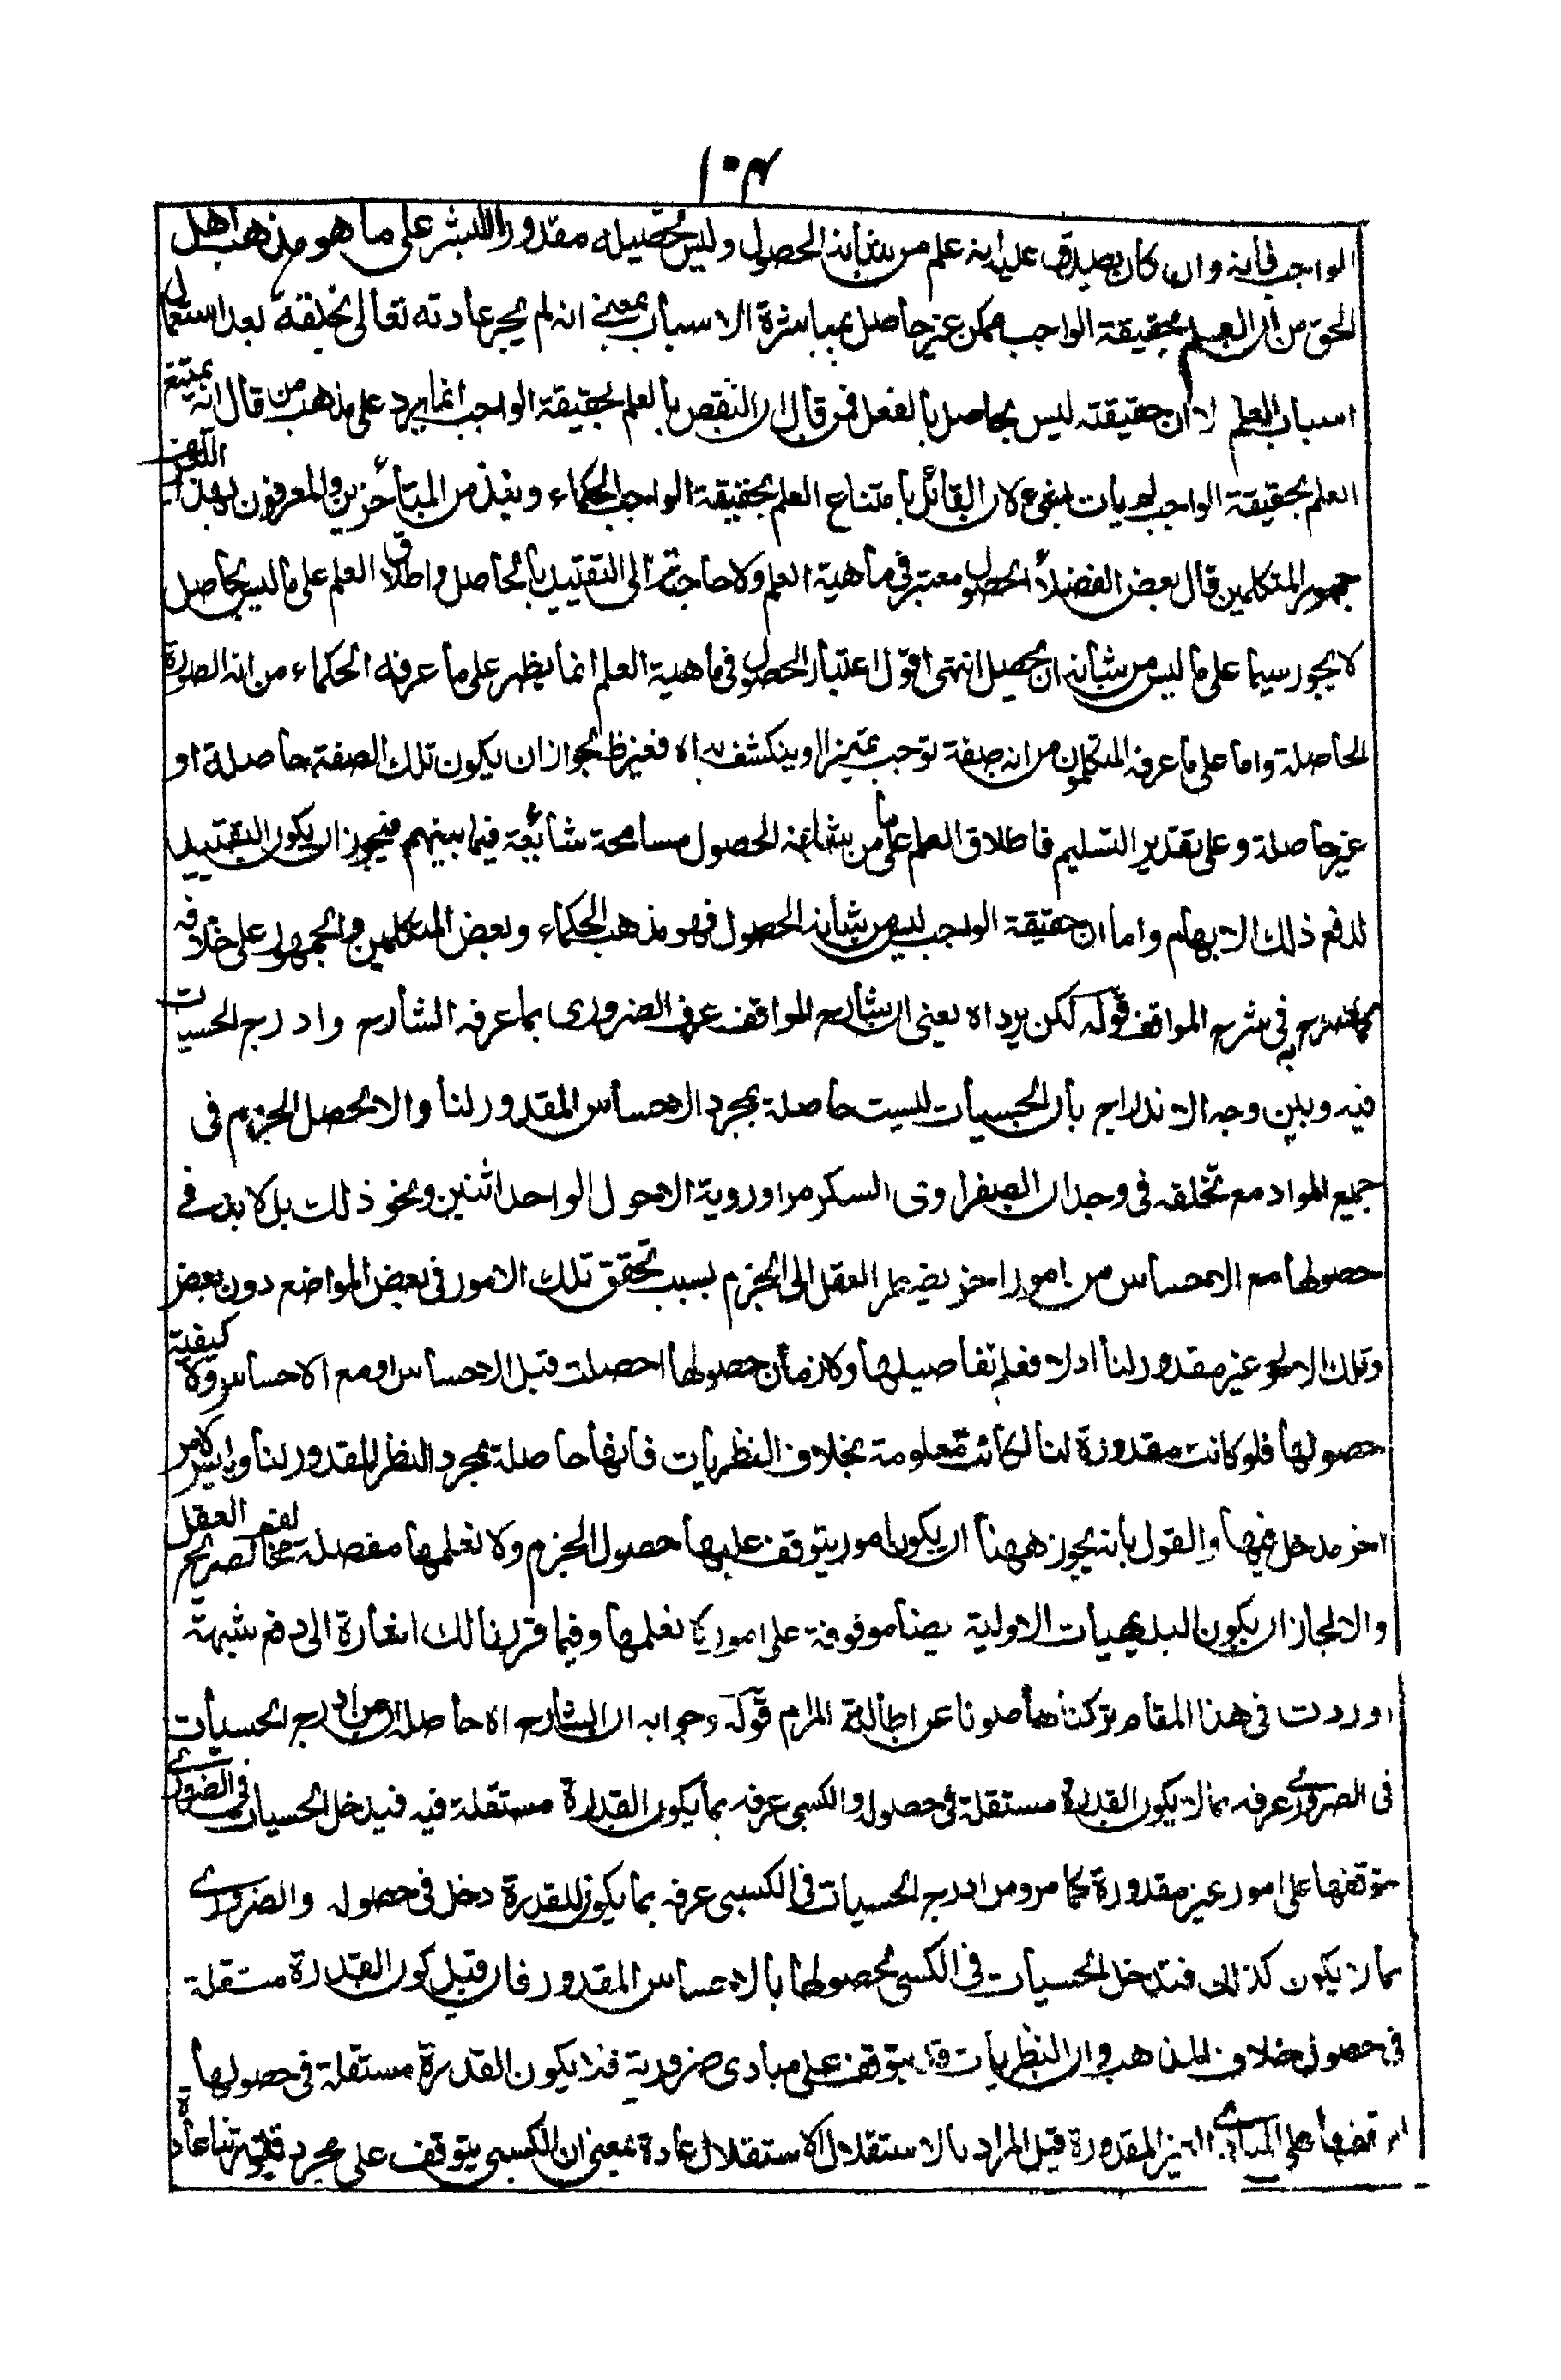 ١٠٣
الواجب فانه وان كان يصدق عليه انه علم من شانه الحصول وليس تحصيله مقدورا للبشر على ما هو مذهب اهل
الحق من ان العلم بحقيقة الواجب ممكن غير حاصل بمباشرة الاسباب بمعنى انه لم يجر عادته تعالى بخلقه بعد استعمال
اسباب العلم لا ان حقيقته ليس بحاصل بالفعل فمن قال ان النقض بالعلم بحقيقة الواجب انما يرد على مذهب من قال انه يمتنع
العلم بحقيقة الواجب لم يات بشيء لان القائل بامتناع العلم بحقيقة الواجب الحكماء ونبذ من المتأخرين والمعرفون بهذا التعريف
جمهور المتكلمين قال بعض الفضلاء الحصول معتبر في ماهية العلم ولا حاجة الى التقييد بالحاصل واطلاق العلم على ما ليس بحاصل
لا يجوز سيما على ما ليس من شأنه ان يحصل انتهى اقول اعتبار الحصول في ماهية العلم انما يظهر على ما عرفه الحكماء من انه الصورة
الحاصلة واما على ما عرفه المتكلمون من انه صفة توجب تميزا او ينكشف به اه فغير ظ لجواز ان يكون تلك الصفة حاصلة او
غير حاصلة وعلى تقدير التسليم فاطلاق العلم على ما من شانه الحصول مسامحة شائعة فيما بينهم فيجوز ان يكون التقييد
لدفع ذلك الابهام واما ان حقيقة الواجب ليس من شانه الحصول فهو مذهب الحكماء وبعض المتكلمين والجمهور على خلافه
كما صرح به في شرح المواقف قوله لكن يرد اه يعنى ان شارح المواقف عرف الضرورى بما عرفه الشارح وادرج الحسيات
فيه وبين وجه الاندراج بان الحسيات ليست حاصلة بمجرد الاحساس المقدور لنا والا لحصل الجزم فى
جميع المواد مع تخلفه فى وجدان الصفراوى السكر مرا وروية الاحول الواحد اثنين ونحو ذلك بل لا بد فى
حصولها مع الاحساس من امور اخر يضطر العقل الى الجزم بسبب تحقق تلك الامور فى بعض المواضع دون بعض
وتلك الامور غير مقدور لنا اذ لا نعلم تفاصيلها ولا زمان حصولها احصلت قبل الاحساس او مع الاحساس ولا كيفية
حصولها فلو كانت مقدورة لنا لكانت معلومة بخلاف النظريات فانها حاصلة بمجرد النظر المقدور لنا وليس لامر
اخر مدخل فيها والقول بانه يجوز ههنا ان يكون امور يتوقف عليها حصول الجزم ولا نعلمها مفصلة مخالف لصريح العقل
والا لجاز ان يكون البديهيات الاولية ايضا موقوفة على امور لا نعلمها وفيما قررنا لك اشارة الى دفع شبهة
اوردت فى هذا المقام تركناها صونا عن اطالة المرام قوله وجوابه ان الشارح اه حاصله ان من ادرج الحسيات
فى الضرورى عرفه بما لا يكون القدرة مستقلة فى حصوله والكسبى عرفه بما يكون القدرة مستقلة فيه فيدخل الحسيات فى الضرورى
لتوقفها على امور غير مقدورة كما مر ومن ادرج الحسيات فى الكسبى عرفه بما يكون للقدرة دخل فى حصوله والضرورى
بما لا يكون كذلك فتدخل الحسيات فى الكسبى لحصولها بالاحساس المقدور فان قيل كون القدرة مستقلة
فى حصول خلاف المذهب وان النظريات قد يتوقف على مبادى ضرورية فلا يكون القدرة مستقلة فى حصولها
لتوقفها على المبادى الغير المقدورة قيل المراد بالاستقلال الاستقلال عادة بمعنى ان الكسبى يتوقف على مجرد قدرتنا عادة